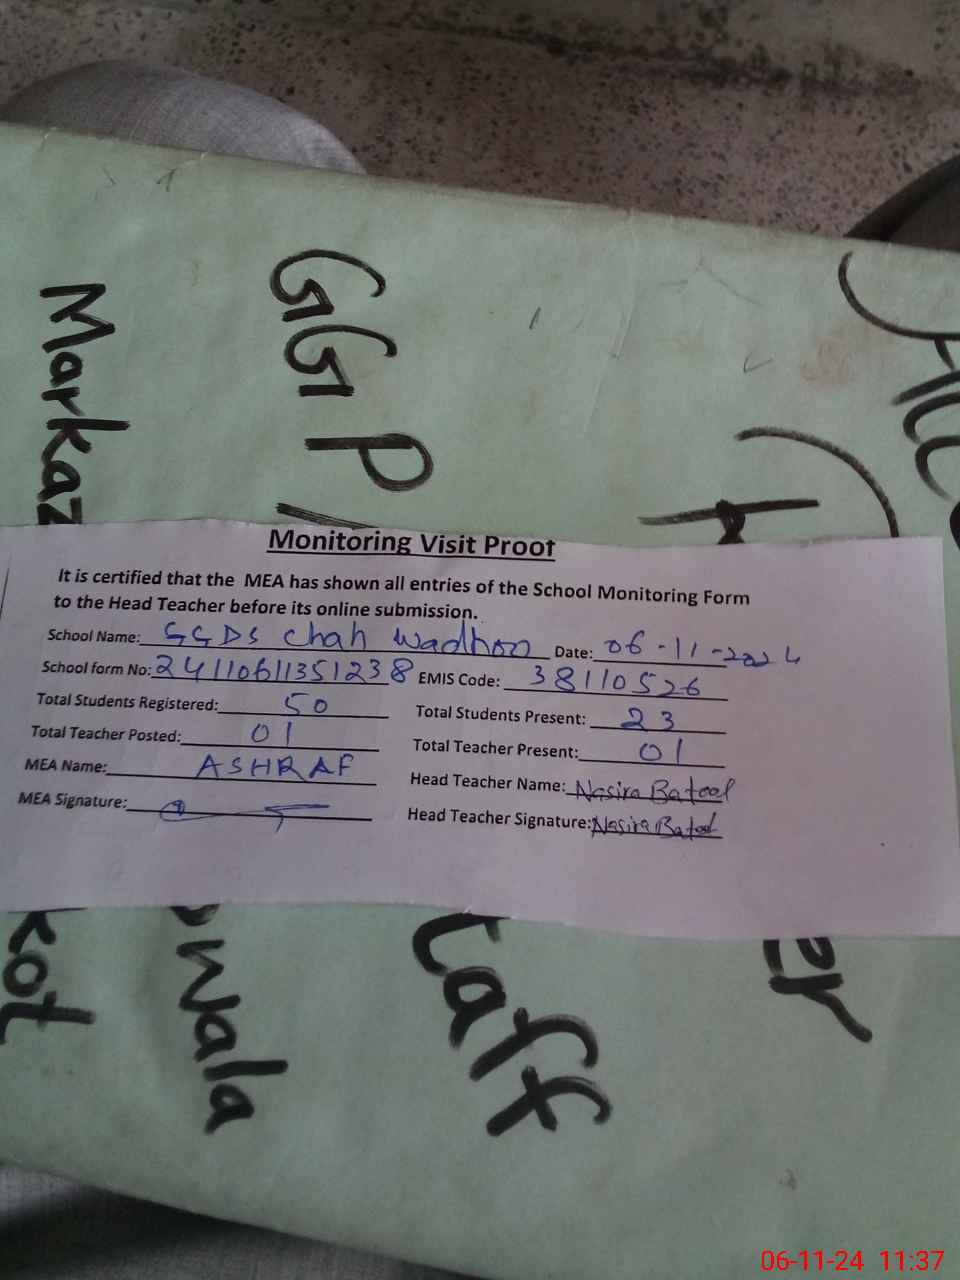 Markaz
GGP
Monitoring Visit Proof
It is certified that the MEA has shown all entries of the School Monitoring Form
to the Head Teacher before its online submission.
School Name: GGDS Chah Wadhoo Date: 06-11-2024
School form No: 24110611351238 EMIS Code: 38110526
Total Students Registered: 50 Total Students Present: 23
Total Teacher Posted: 01 Total Teacher Present: 01
MEA Name: ASHRAF Head Teacher Name: Nasira Batool
MEA Signature: Head Teacher Signature: Nasira Batool
kot
wala
taff
er
06-11-24 11:37